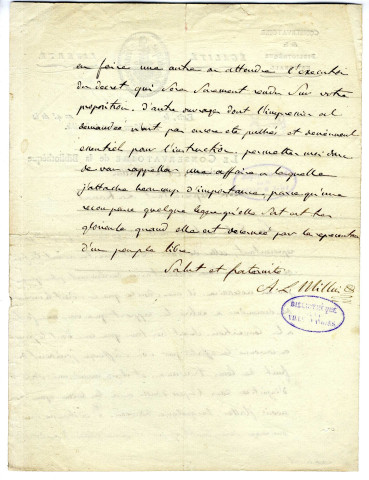 en faire une autre ou attendre l'execution
du decret qui sera surement rendu sur votre
proposition. d'autre ouvrages dont l'impression a été
demandée n'ont pas encore été publiés et deviennent
essentiel pour l'instruction. permettez moi donc
de vous rappeller une affaire a laquelle
j'attache beaucoup d'importance, parce qu'une
recompense quelque legere qu'elle soit est bien
glorieuse quand elle est décernée par les représentans
d'un peuple libre
Salut et fraternité
A. L. Millin
BIBLIOTHEQUE